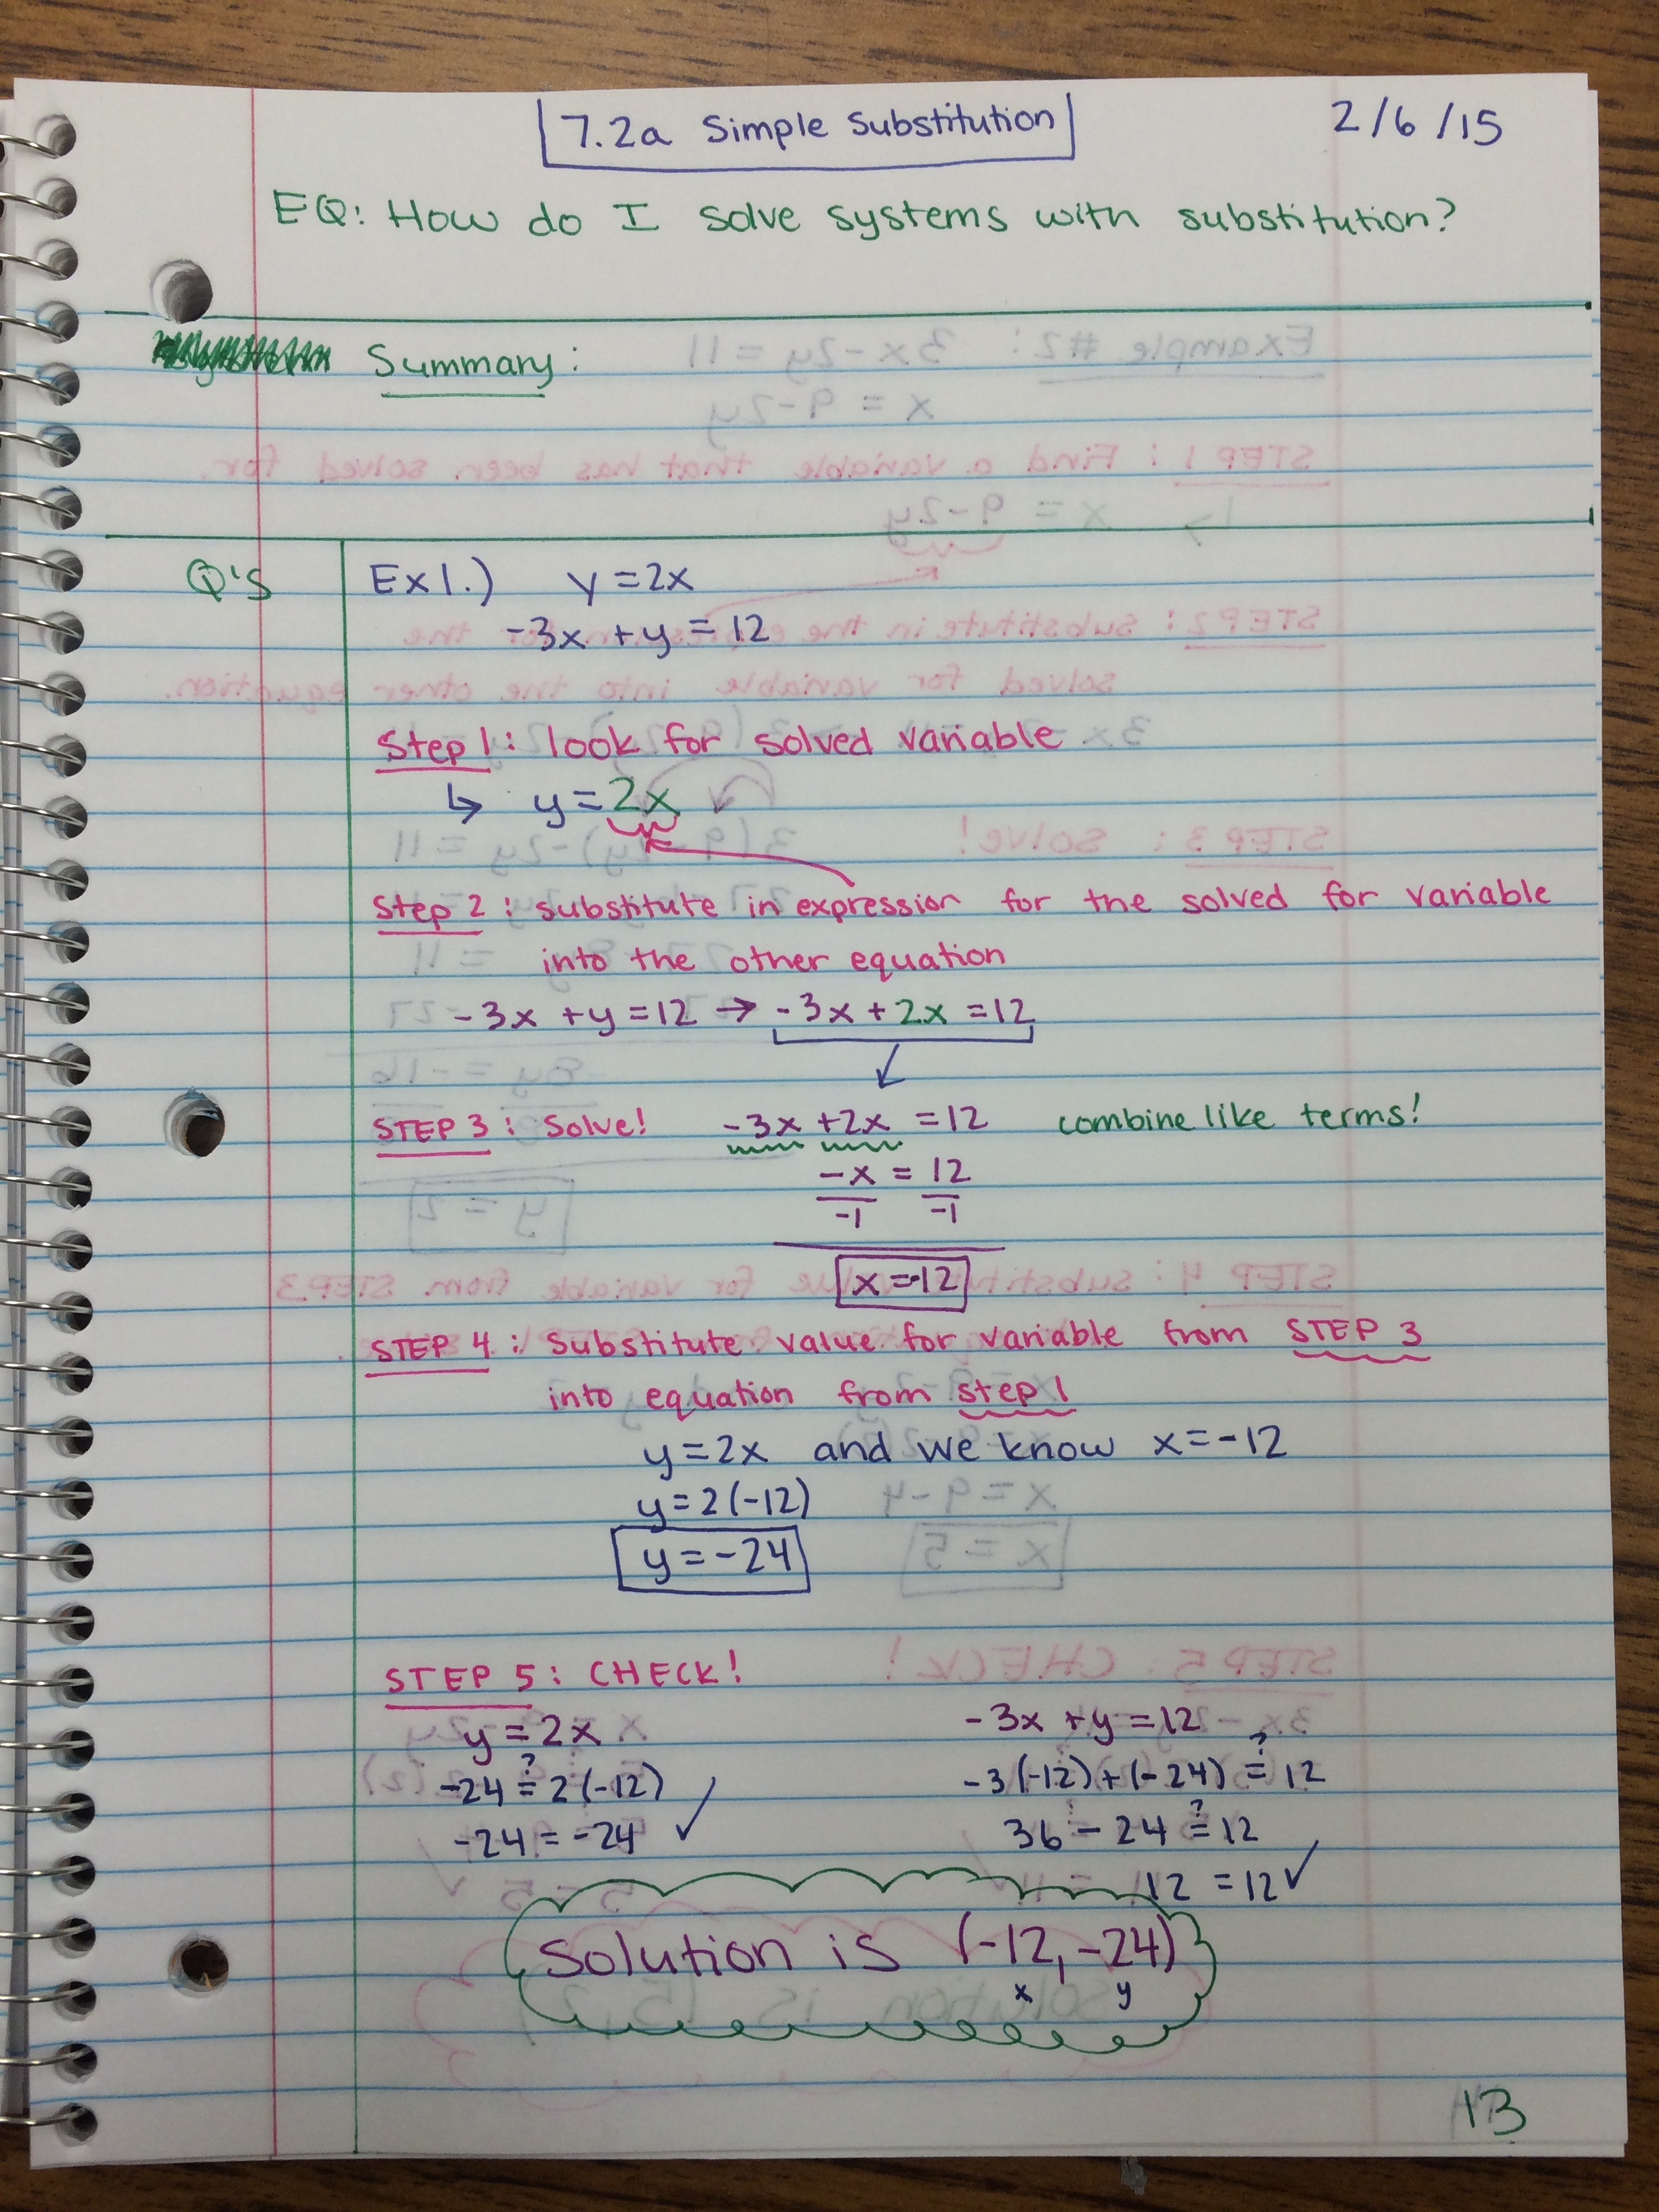 7.2a Simple Substitution
2/6/15
EQ: How do I solve systems with substitution?
Summary:
Q's
Ex1.) y = 2x
-3x + y = 12
Step 1: look for solved variable
↳ y = 2x
Step 2: substitute in expression for the solved for variable
into the other equation
-3x + y = 12 → -3x + 2x = 12
STEP 3: Solve! -3x + 2x = 12 combine like terms!
-x = 12
-1 -1
x = -12
STEP 4: Substitute value for variable from STEP 3
into equation from step 1
y = 2x and we know x = -12
y = 2(-12)
y = -24
STEP 5: CHECK!
y = 2x
-24 ≟ 2(-12)
-24 = -24 ✓
-3x + y = 12
-3(-12) + (-24) ≟ 12
36 - 24 ≟ 12
12 = 12 ✓
Solution is (-12, -24)
x y
13